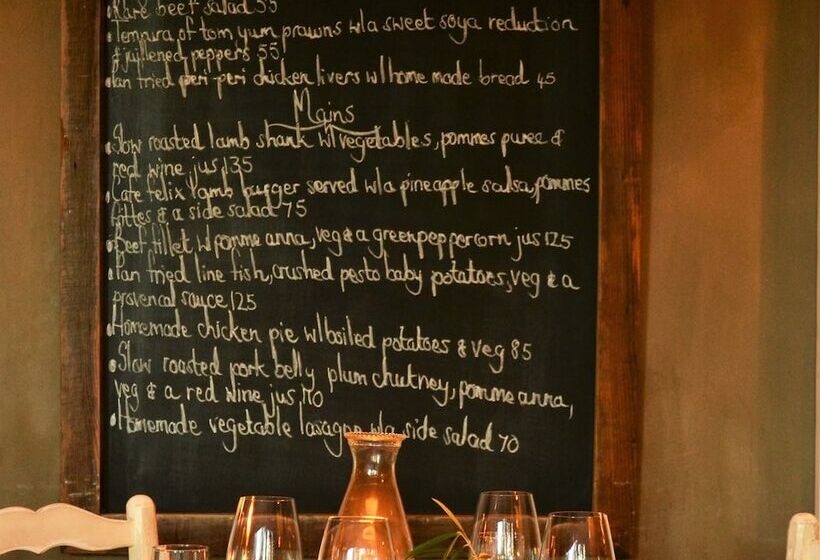 • Rare beef salad 55
• Tempura of tom yum prawns w/a sweet soya reduction
& jullened peppers 55
• Pan fried peri-peri chicken livers w/home made bread 45
Mains
• Slow roasted lamb shank w/vegetables, pommes puree &
red wine jus 135
• Cafe felix lamb burger served w/a pineapple salsa, pommes
frites & a side salad 75
• Beef fillet w pomme anna, veg & a greenpeppercorn jus 125
• Pan fried line fish, crushed pesto baby potatoes, veg & a
provencal sauce 125
• Homemade chicken pie w/boiled potatoes & veg 85
• Slow roasted pork belly plum chutney, pomme anna,
veg & a red wine jus 110
• Homemade vegetable lasagne w/a side salad 70